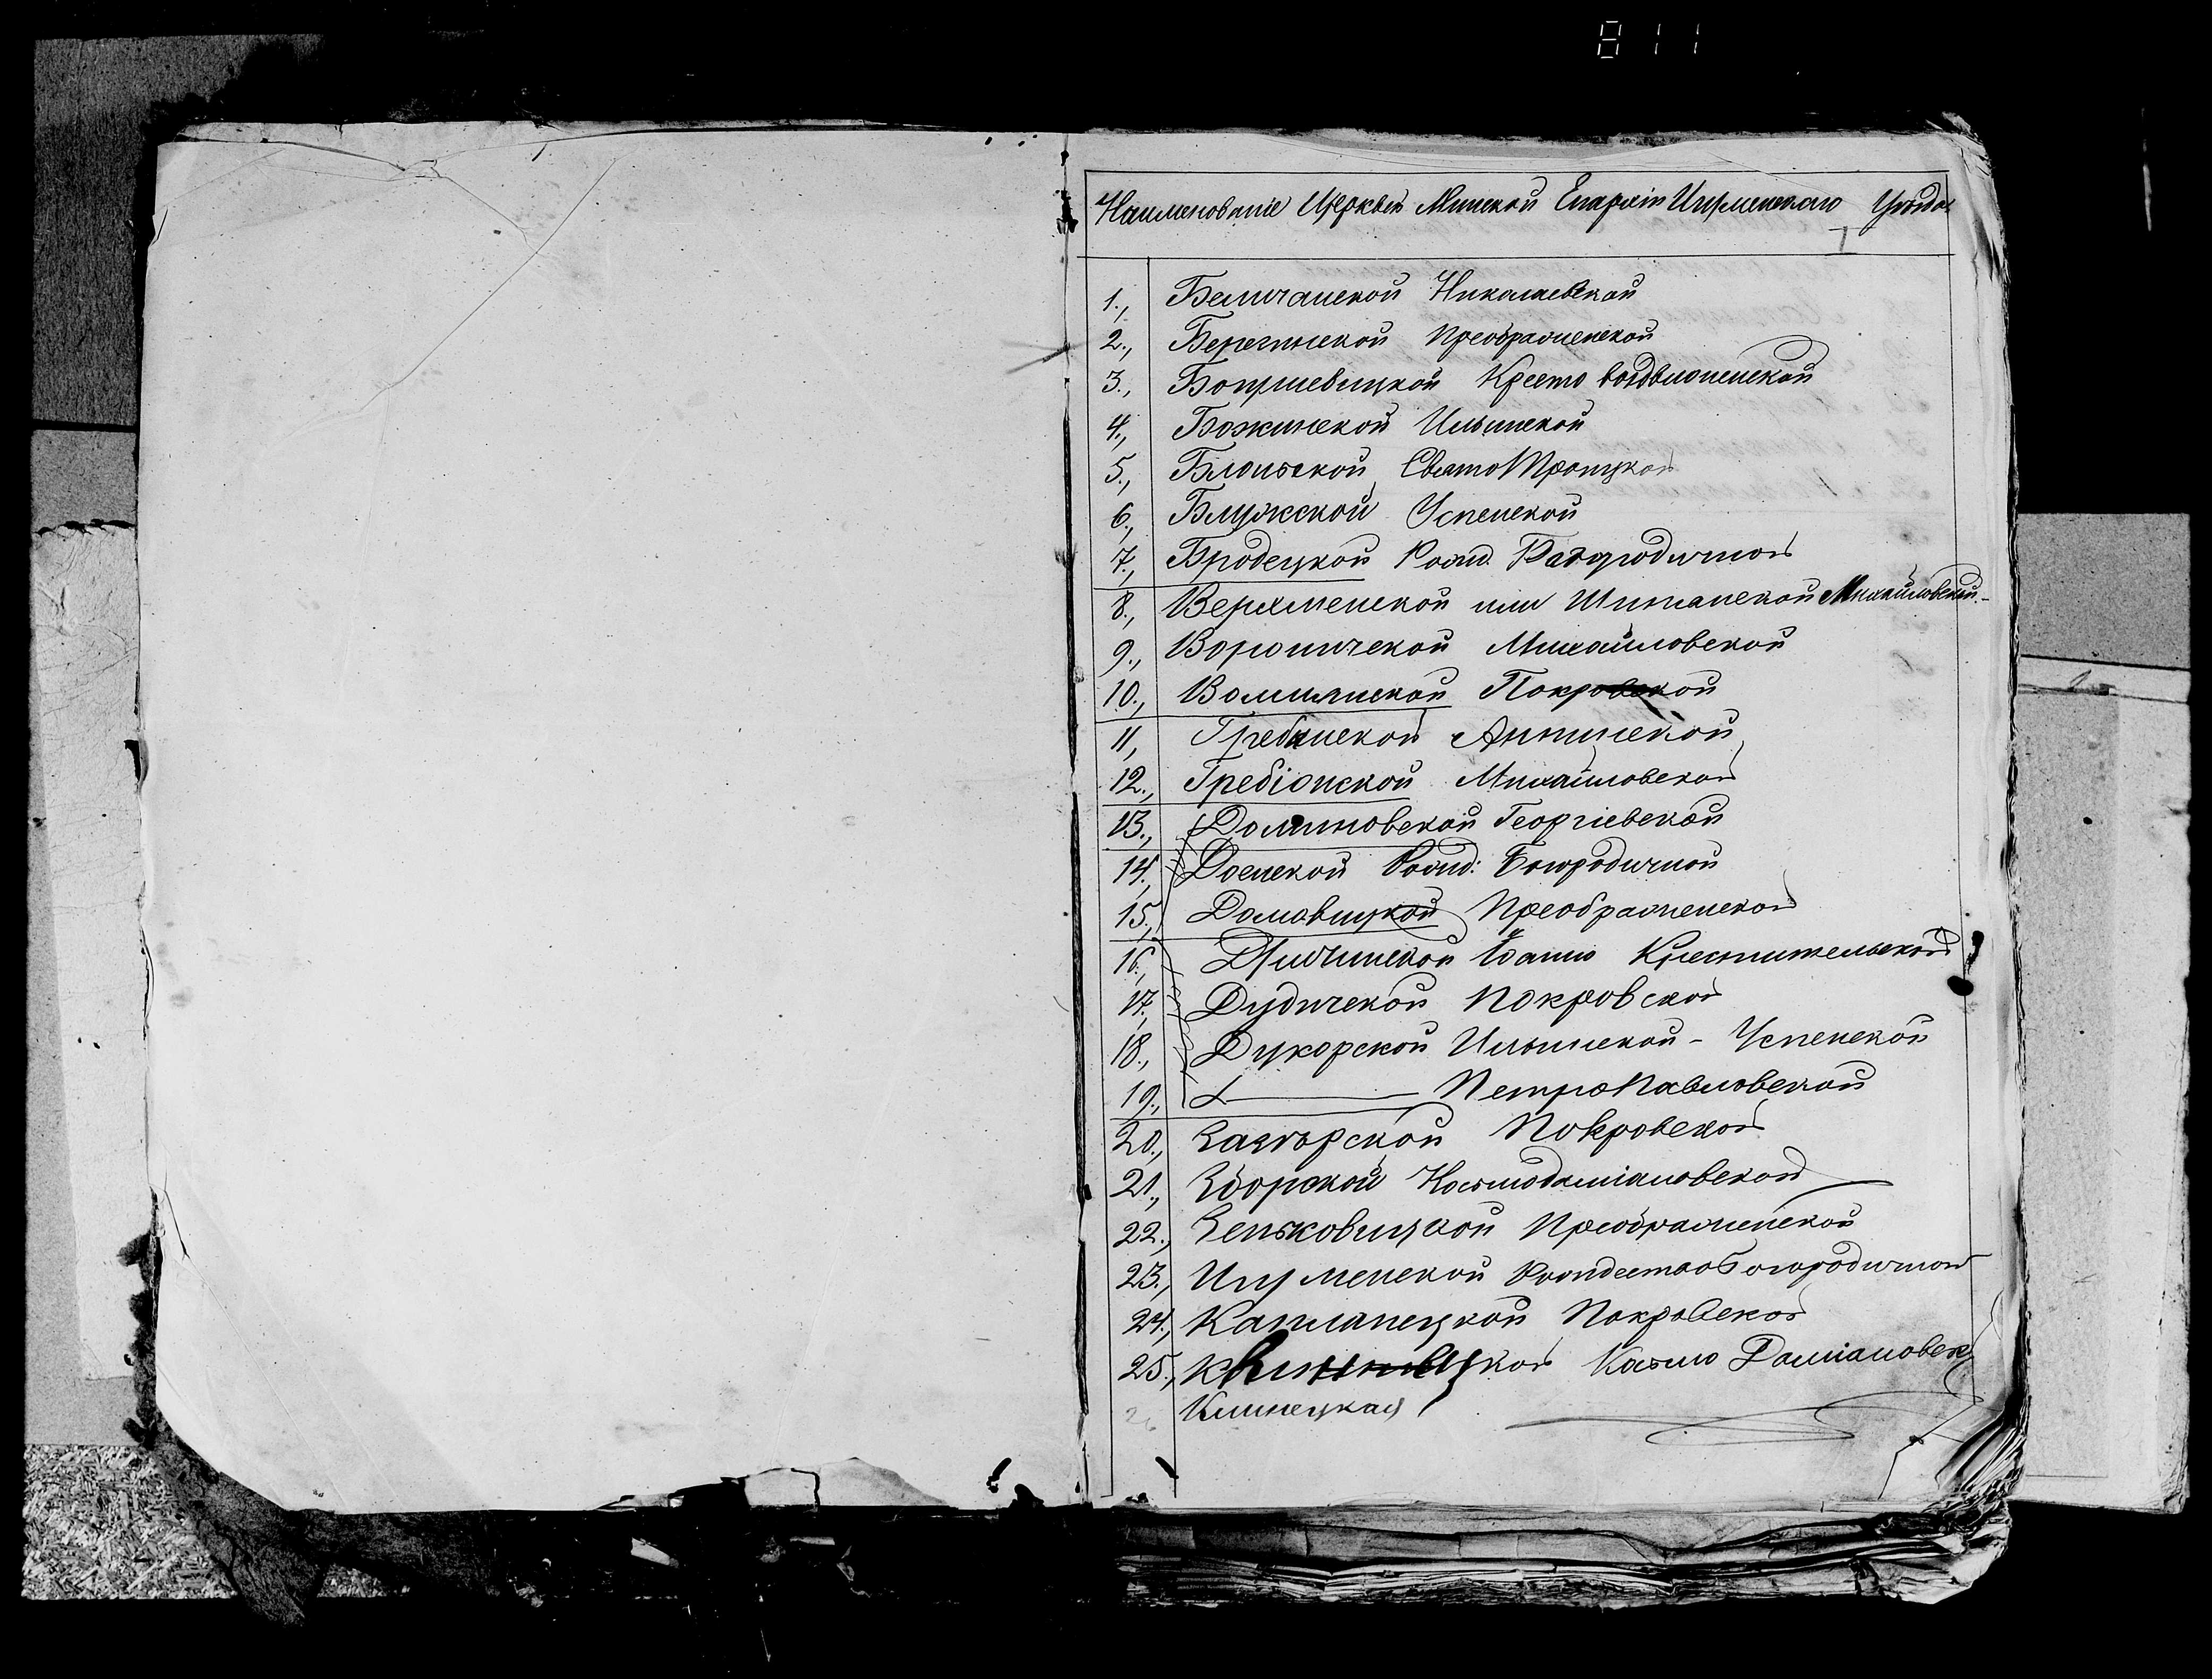 811
Наименованіе Церквей Минской Епархіи Игуменскаго Уѣзда
1., Беличанской Николаевской
2., Березинской Преображенской
3., Богушевицкой Кресто воздвиженской
4., Божинской Ильинской
5., Блоньской Свято Троицкой
6., Блужской Успенской
7., Бродецкой Рожд. Богородичной
8., Верхменской или Шипянской Михайловской
9., Вороничской Михайловской
10., Волмянской Покровской
11, Гребенской Аннинской
12., Гребіонской Михайловской
13., Долиновской Георгіевской
14., Доенской Рожд: Богородичной
15., Домовицкой Преображенской
16., Дричинской Іоанно Крестительской
17., Дудичской Покровской
18., Дукорской Ильинской - Успенской
19., Петро Павловской
20., Заозерской Покровской
21., Зборской Космодаміановской
22., Зеньковицкой Преображенской
23., Игуменской Рождество Богородичной
24., Капланецкой Покровской
25., Космо Даміановск
26 Клинецкая